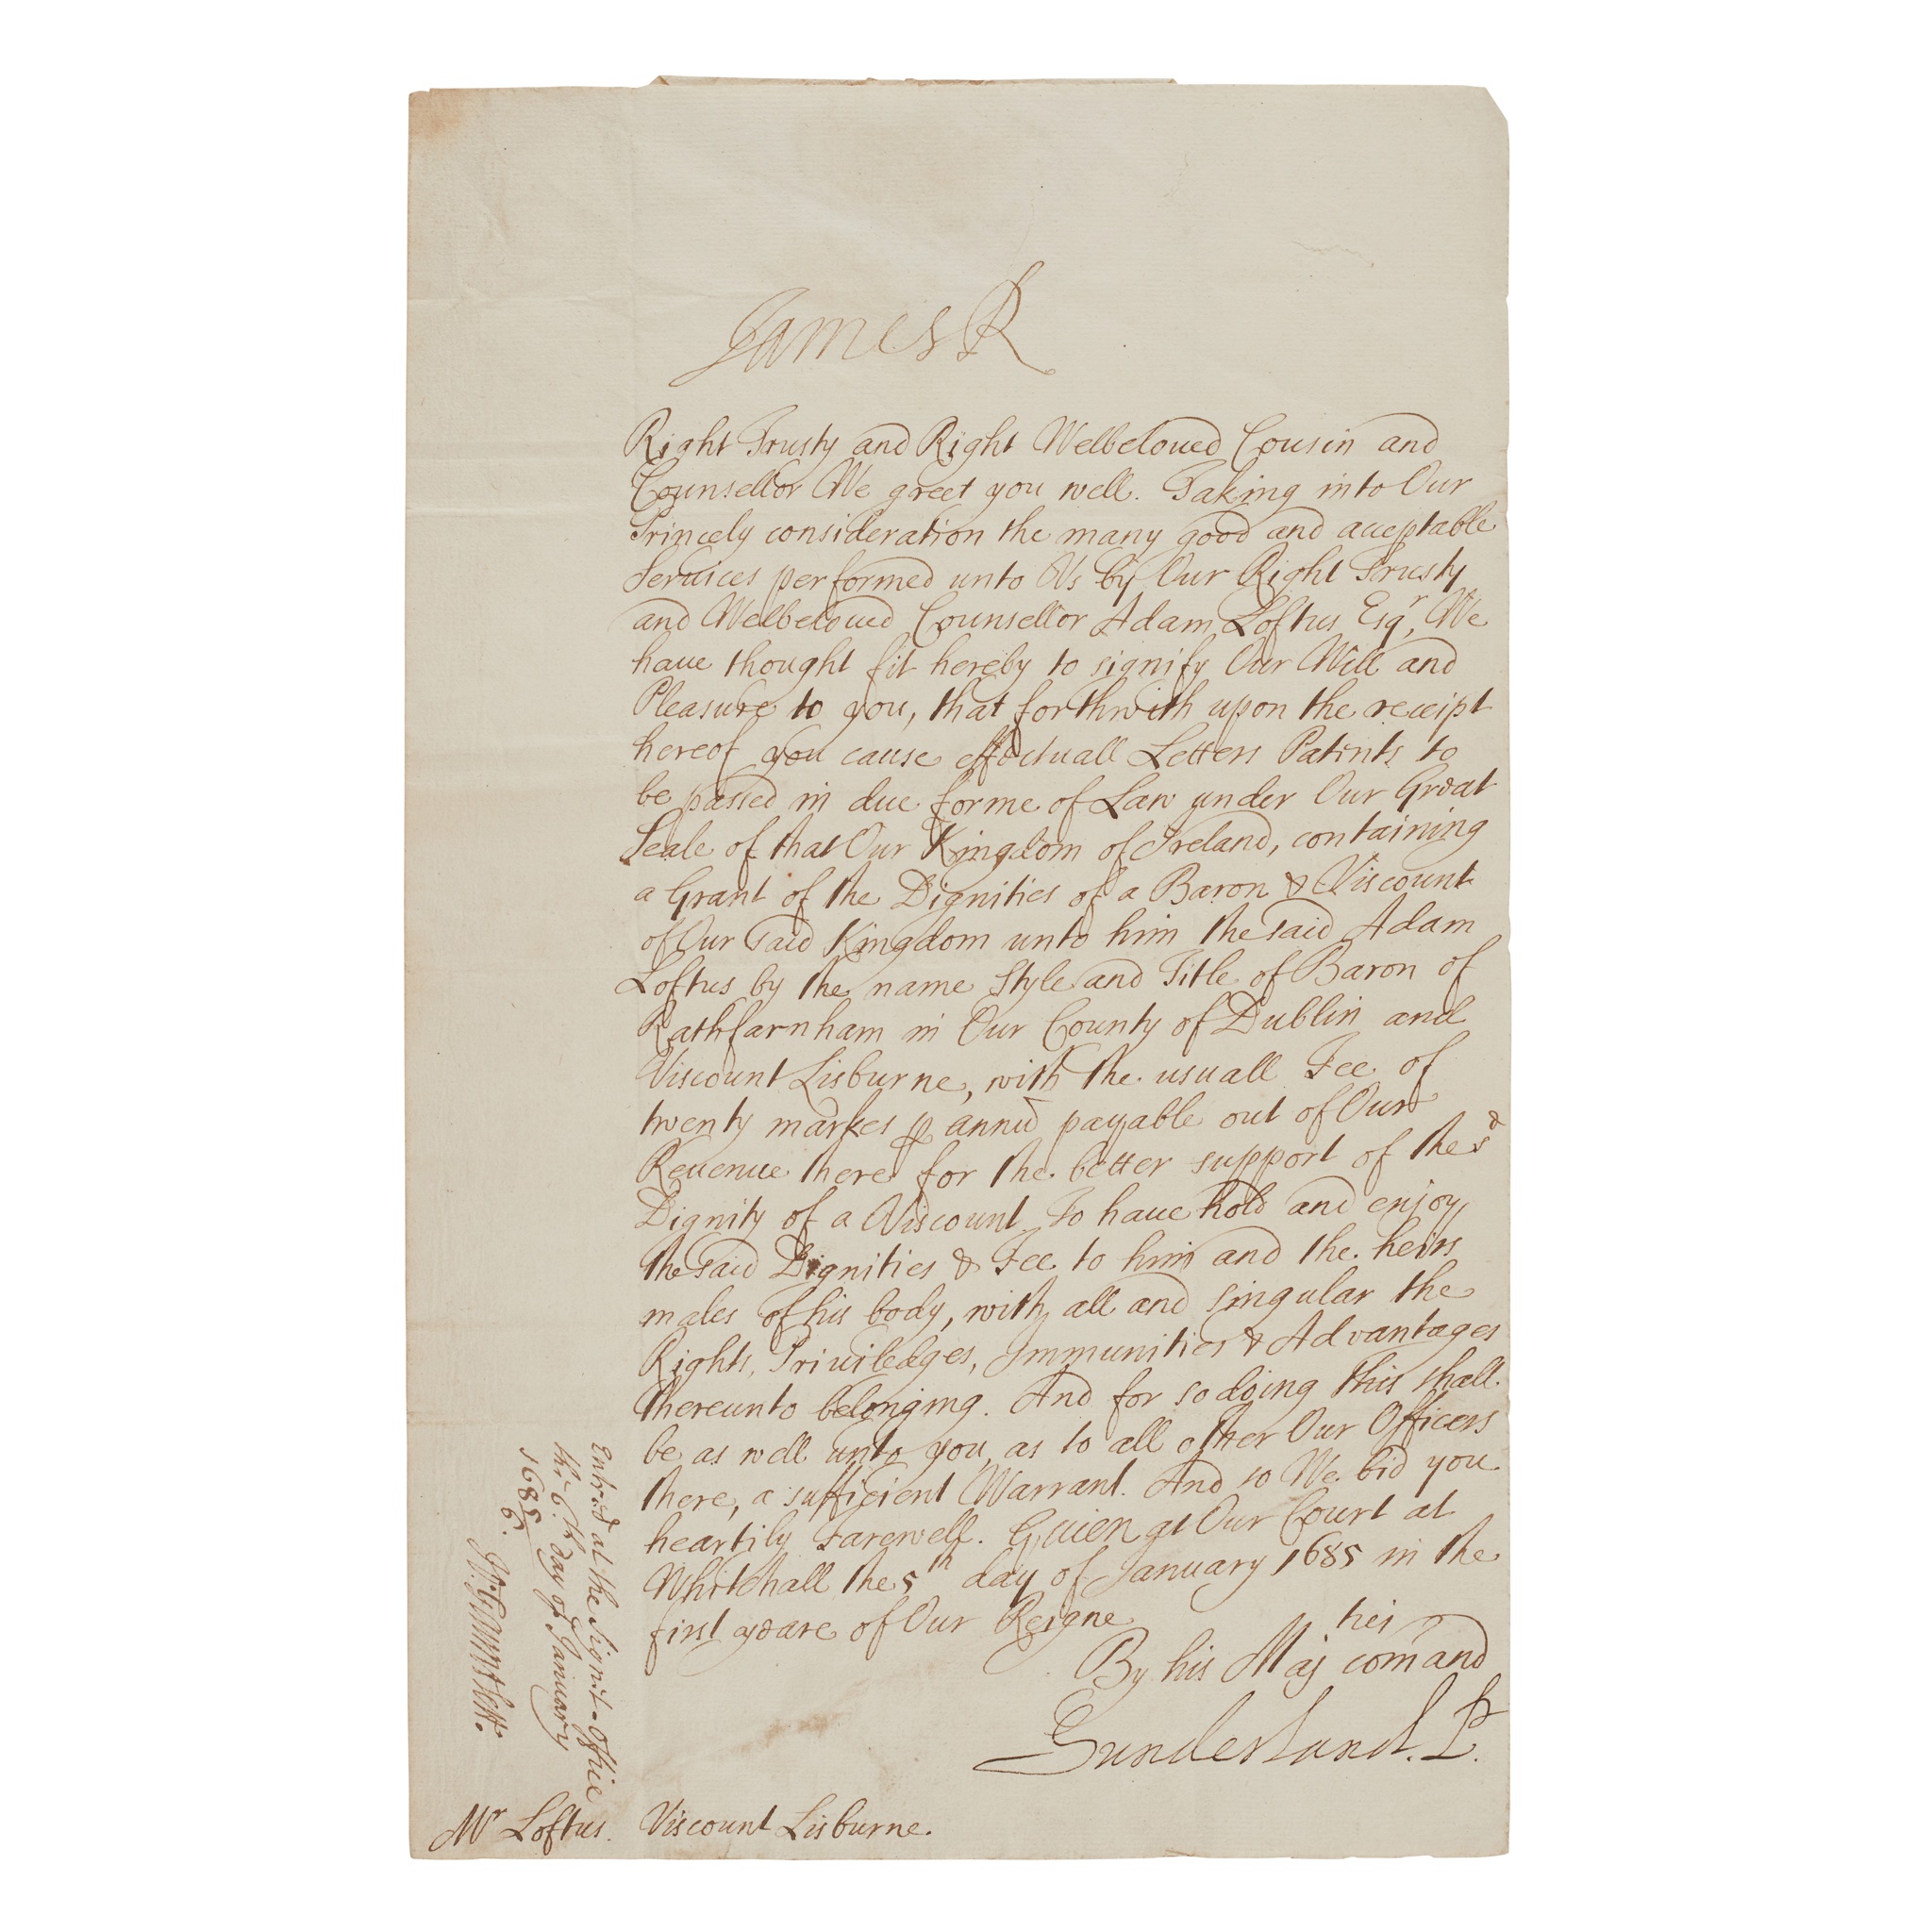 James R
Right Trusty and Right Welbeloued Cousin and
Counsellor We greet you well. Taking into Our
Princely consideration the many good and acceptable
Seruices performed unto Us by Our Right Trusty
and Welbeloued Counsellor Adam Loftus Esqr, We
haue thought fit hereby to signify Our Will and
Pleasure to you, that forthwith upon the receipt
hereof you cause effectuall Letters Patents to
be passed in due forme of Law under Our Great
Seale of that Our Kingdom of Ireland, containing
a Grant of the Dignities of a Baron & Viscount
of Our said Kingdom unto him the said Adam
Loftus by the name Style and Title of Baron of
Rathfarnham in Our County of Dublin and
Viscount Lisburne, with the usuall Fee of
twenty markes ꝑ annū payable out of Our
Reuenue there for the better support of the sd
Dignity of a Viscount To haue hold and enjoy
the said Dignities & Fee to him and the heirs
males of his body, with all and singular the
Rights, Priuiledges, Immunities & Advantages
thereunto belonging. And for so doing this shall
be as well unto you, as to all other Our Officers
there, a sufficient Warrant. And so We bid you
heartily Farewell. Giuen at Our Court at
Whitehall the 5th day of January 1685 in the
first yeare of Our Reigne
By his Majties com̄and
Sunderland. P.
Entred at the Signet-Office
the 6th day of January
1685/6.
Viscount Lisburne.
Mr Loftus.